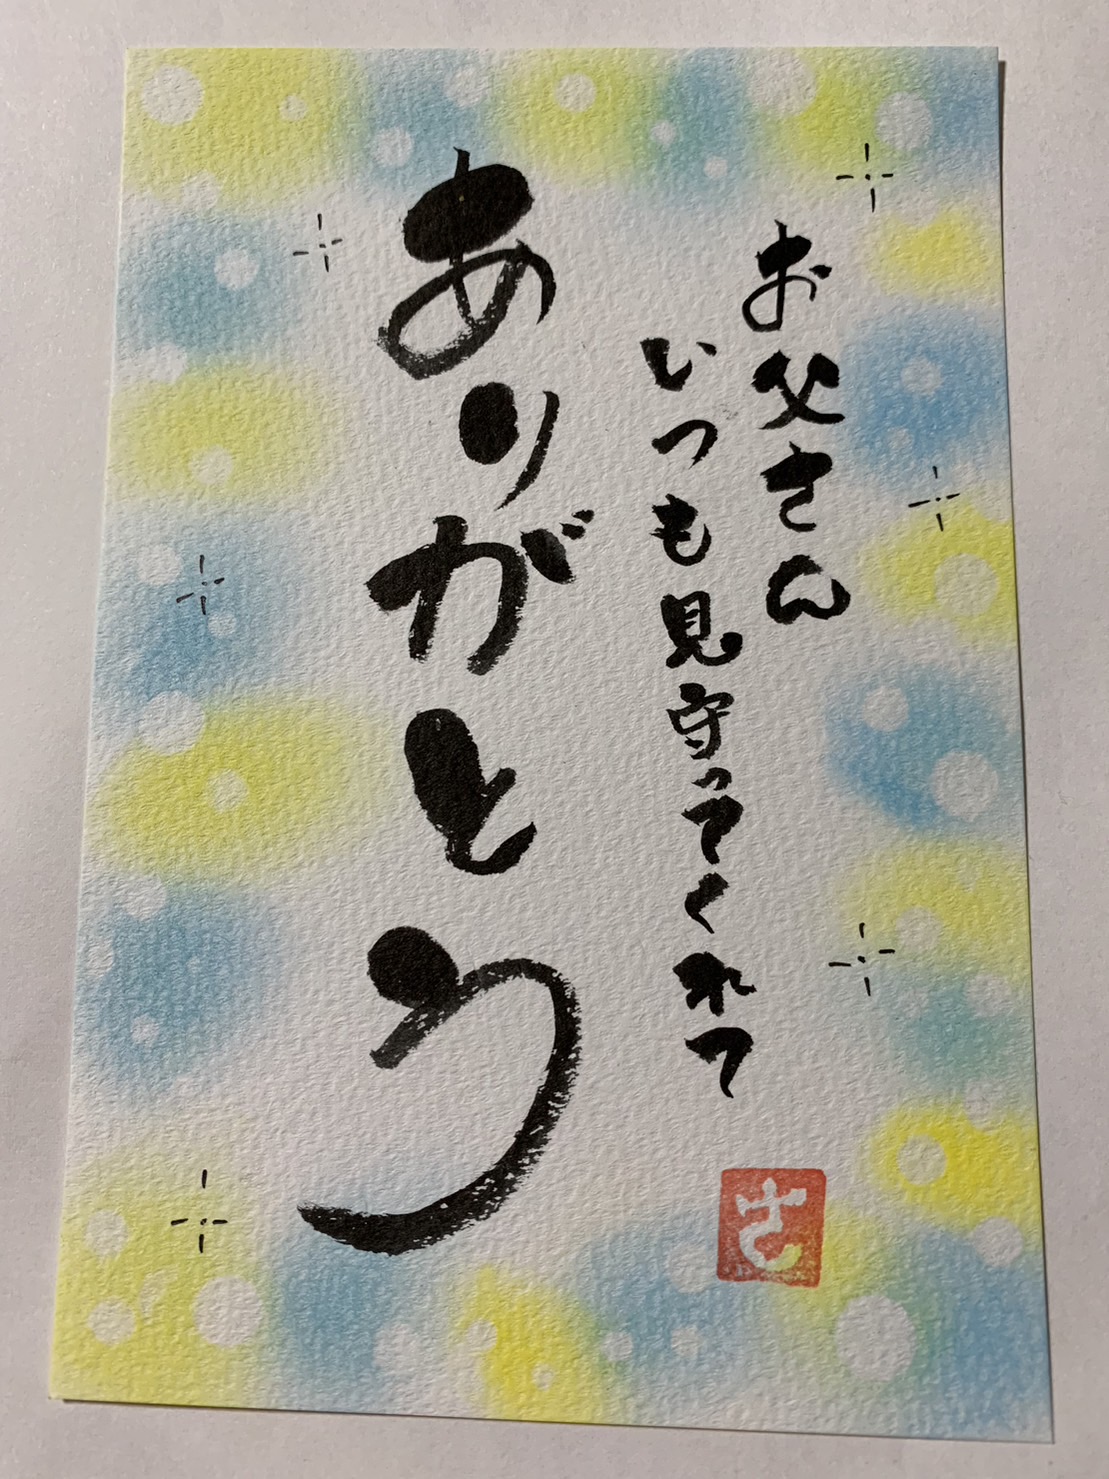 お父さん
いつも見守ってくれて
ありがとう
さ